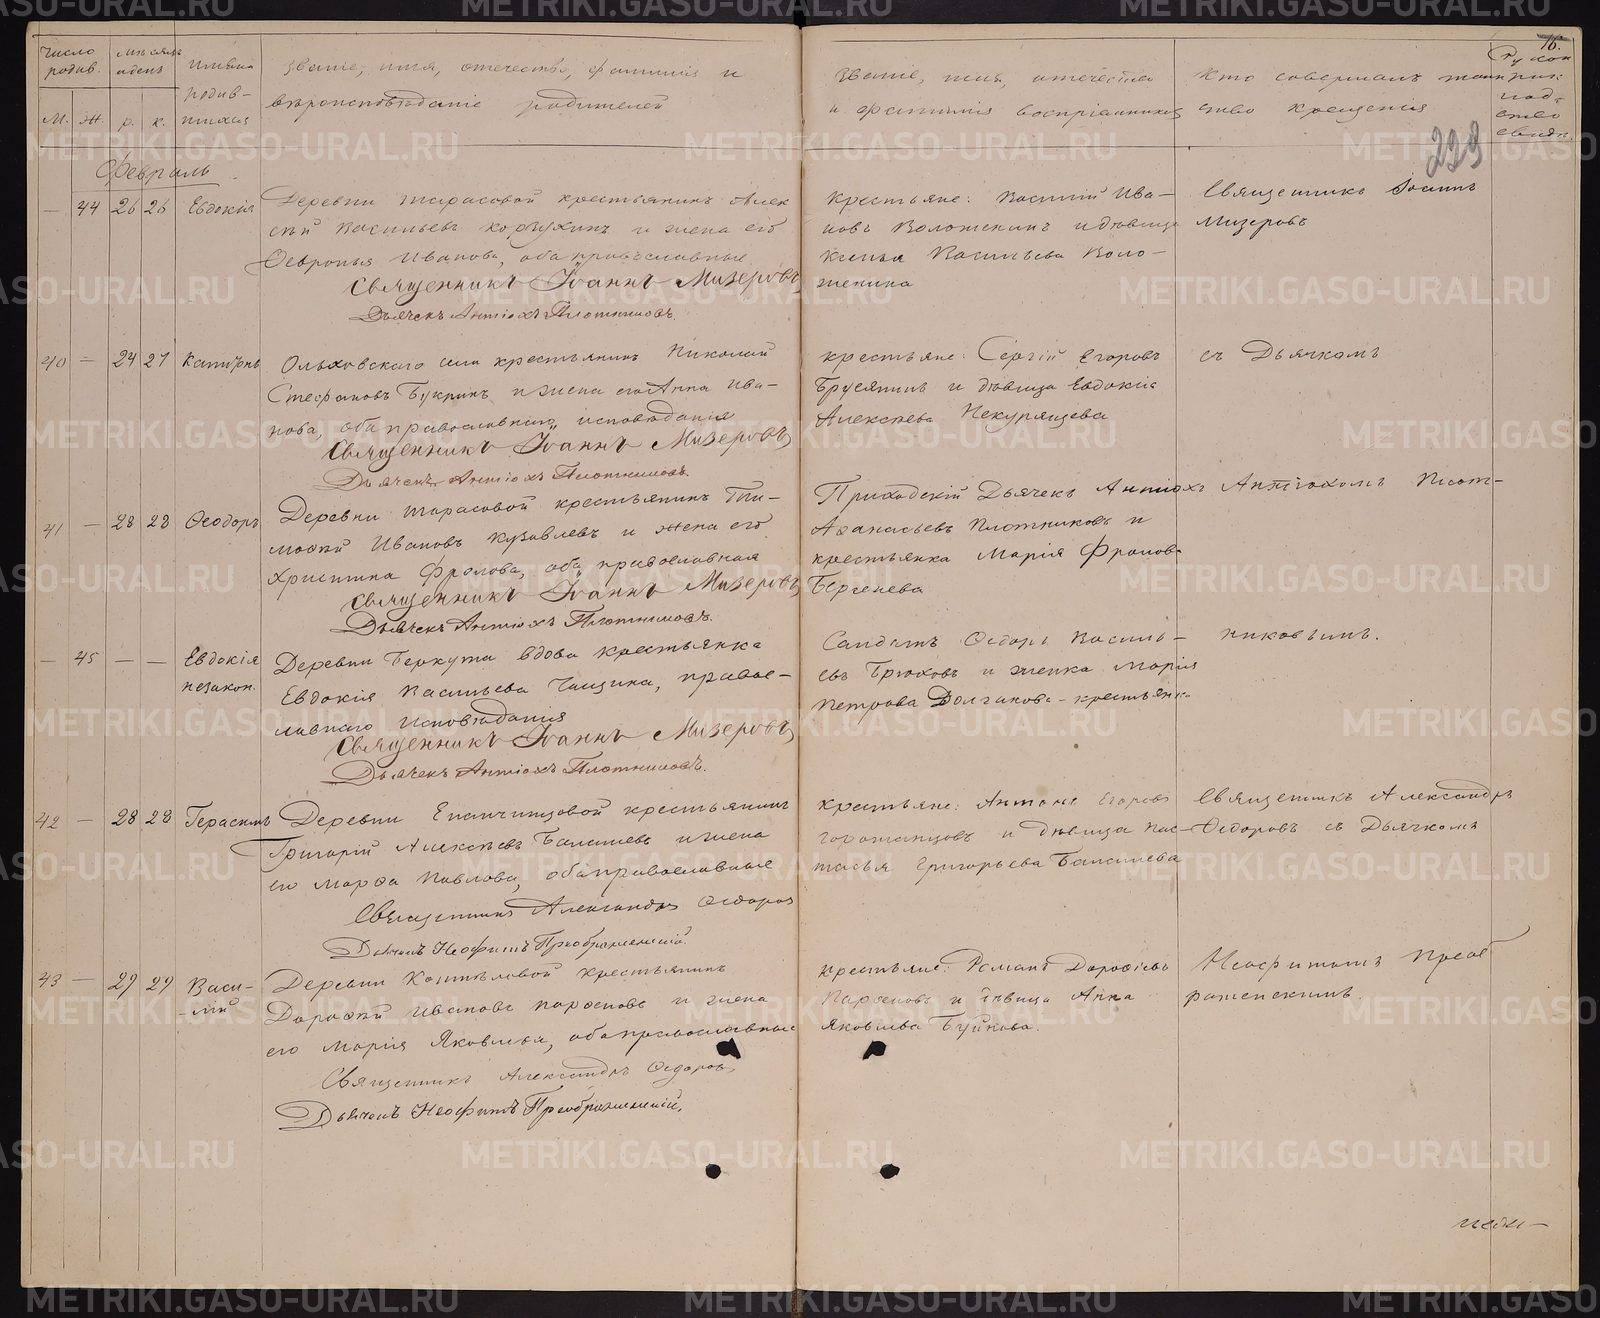 Число родив.
мѣсяцъ и день
имена родив-шихся
званіе, имя, отечество, фамилія и
вѣроисповѣданіе родителей
званіе, имя, отечество
и фамилія воспріемниковъ
Кто совершалъ таин
ство крещенія
16.
229
М. Ж. р. к.
Февраль
— 44 26 26 Евдокія
Деревни Тарасовой крестьянинъ Алек
сѣй Васильевъ и жена его
Февронья Иванова, оба православные
Священникъ Іоаннъ Мизеровъ
Дьячекъ Антіохъ Плотниковъ.
Крестьяне: Василій Ива-
новъ Воложенинъ и дѣвица
Ксенья Васильева Воло-
женина
Священникъ Іоаннъ
Мизеровъ
40 — 24 27
Ольховскаго села крестьянинъ Николай
Стефановъ Букринъ и жена его Анна Ива-
нова, оба православнаго исповѣданія
Священникъ Іоаннъ Мизеровъ
Дьячекъ Антіохъ Плотниковъ.
крестьяне: Сергій Егоровъ
Брусянинъ и дѣвица Евдокія
Алексѣева Некурящева
съ Дьячкомъ
41 — 28 28 Ѳеодоръ
Деревни Тарасовой крестьянинъ Ти-
мофей Ивановъ Журавлевъ и жена его
Христина Фролова, оба православная
Священникъ Іоаннъ Мизеровъ
Дьячекъ Антіохъ Плотниковъ.
Приходскій Дьячекъ Антіохъ
Аѳанасьевъ Плотниковъ и
крестьянка Марія Фролова
Бергенева
Антіохомъ Плот-
— 45 — — Евдокія незакон.
Деревни Беркута вдова крестьянка
Евдокія Васильева Чащина, правос-
лавнаго исповѣданія
Священникъ Іоаннъ Мизеровъ
Дьячекъ Антіохъ Плотниковъ.
Солдатъ Ѳедоръ Василь-
евъ Брюховъ и женка Марія
Петрова Долганова - крестьянка
никовымъ.
42 — 28 28 Герасимъ
Деревни Епанчинцовой крестьянинъ
Григорій Алексѣевъ Балашевъ и жена
его Марѳа Павлова, оба православные
Священникъ Александръ Ѳедоровъ
Дьячекъ Неофитъ Преображенскій.
крестьяне: Антонъ Егоровъ
и дѣвица Нас-
тасья Григорьева Балашева
Священникъ Александръ
Ѳедоровъ съ Дьячкомъ
43 — 29 29 Васи-лій
Деревни крестьянинъ
Дороѳей Ивановъ Парѳеновъ и жена
его Марія Яковлева, оба православные
Священникъ Александръ Ѳедоровъ
Дьячекъ Неофитъ Преображенскій.
крестьяне: Романъ Дороѳеевъ
Парѳеновъ и дѣвица Анна
Яковлева Буйнова.
Неофитомъ Преоб
раженскимъ.